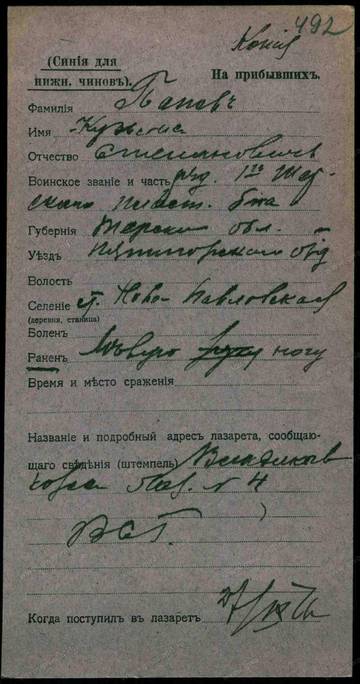 492
Копія
(Синія для
нижн. чиновъ).
На прибывшихъ.
Фамилія Поповъ
Имя Кузьма
Отчество Степановичъ
Воинское званіе и часть ряд. 1го Тер-
скаго пласт. б-на
Губернія Терская обл.
Уѣздъ Пятигорскій отд
Волость
Селеніе ст. Ново-Павловская
(деревня, станица)
Боленъ
Раненъ лѣвую ногу
Время и мѣсто сраженія
Названіе и подробный адресъ лазарета, сообщаю-
щаго свѣдѣнія (штемпель) Владикав
каз Лаз. N 4
Когда поступилъ въ лазаретъ